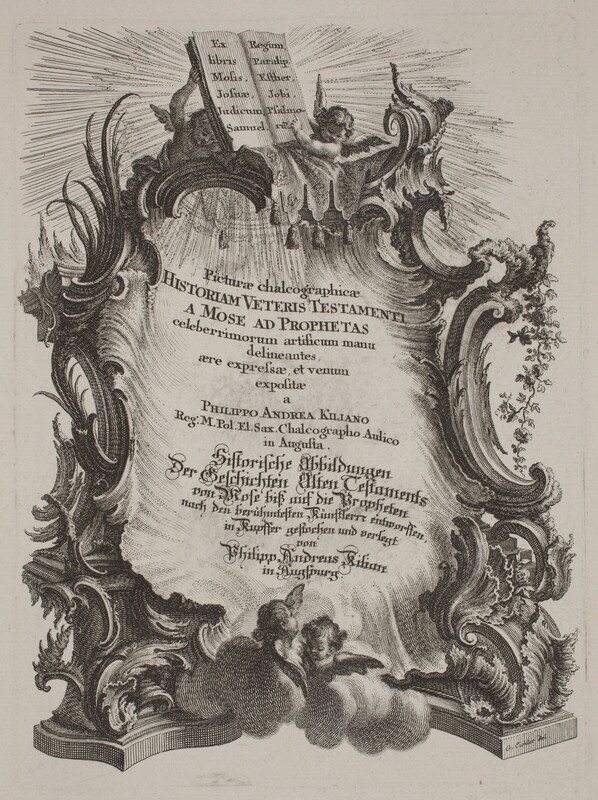 Ex
libris
Mosis.
Josuæ,
Judicum,
Samuel.
Regum
Paralip.
Esther.
Jobi.
Psalmo-
Picturæ chalcographicæ
HISTORIAM VETERIS TESTAMENTI
A MOSE AD PROPHETAS
celeberrimorum artificum manu
delineantes,
ære expressæ, et venum
expositæ
a
PHILIPPO ANDREA KILIANO
Reg. M. Pol. El. Sax. Chalcographo Aulico
in Augusta.
Historische Abbildungen
Der Geschichten Alten Testaments
von Mose biß auf die Propheten
nach den berühmtesten Künstlern entworffen,
in Kupffer gestochen und verlegt
von
Philipp Andreas Kilian
in Augspurg